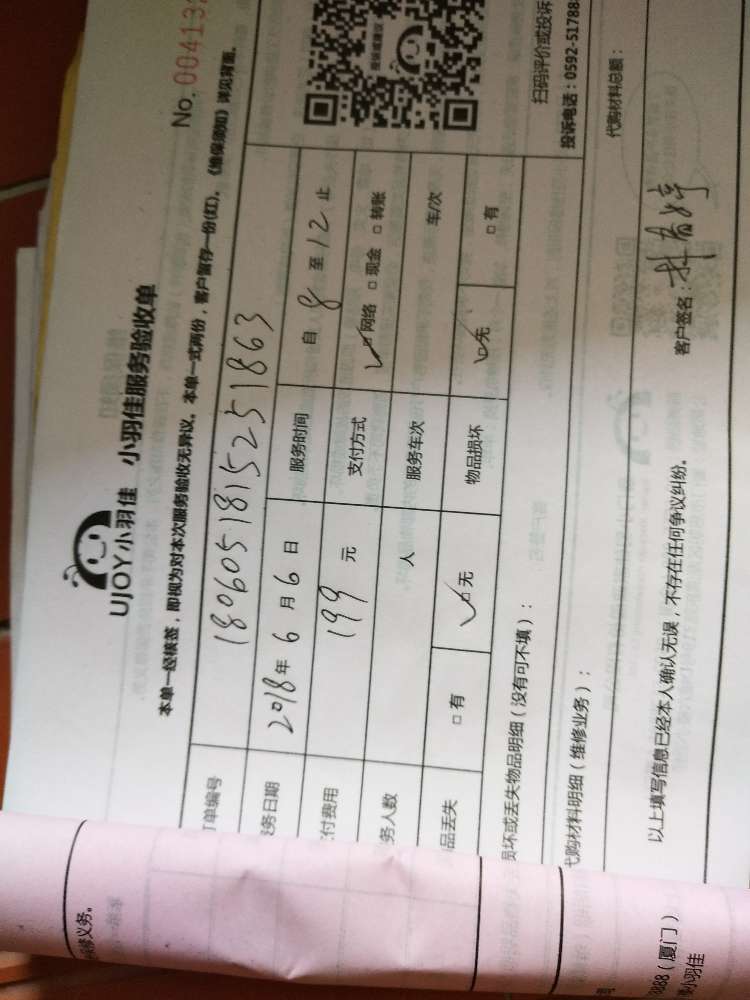 No. 00413
UJOY小羽佳 小羽佳服务验收单
本单一经核签，即视为对本次服务验收无异议。本单一式两份，客户留存一份(红)。《维保须知》详见背面。
订单编号 180605181525251863
服务日期 2018年6月6日 服务时间 自8至12止
支付费用 199元 支付方式 网络 □现金 □转账
服务人数 人 服务车次 车/次
物品丢失 □有 □无 物品损坏 □无 □有
损坏或丢失物品明细（没有可不填）：
代购材料明细（维修业务）： 代购材料总额：
以上填写信息已经本人确认无误，不存在任何争议纠纷。 客户签名：
扫码评价或投诉
投诉电话：0592-51788
保修义务。
8888（厦门）
小羽佳